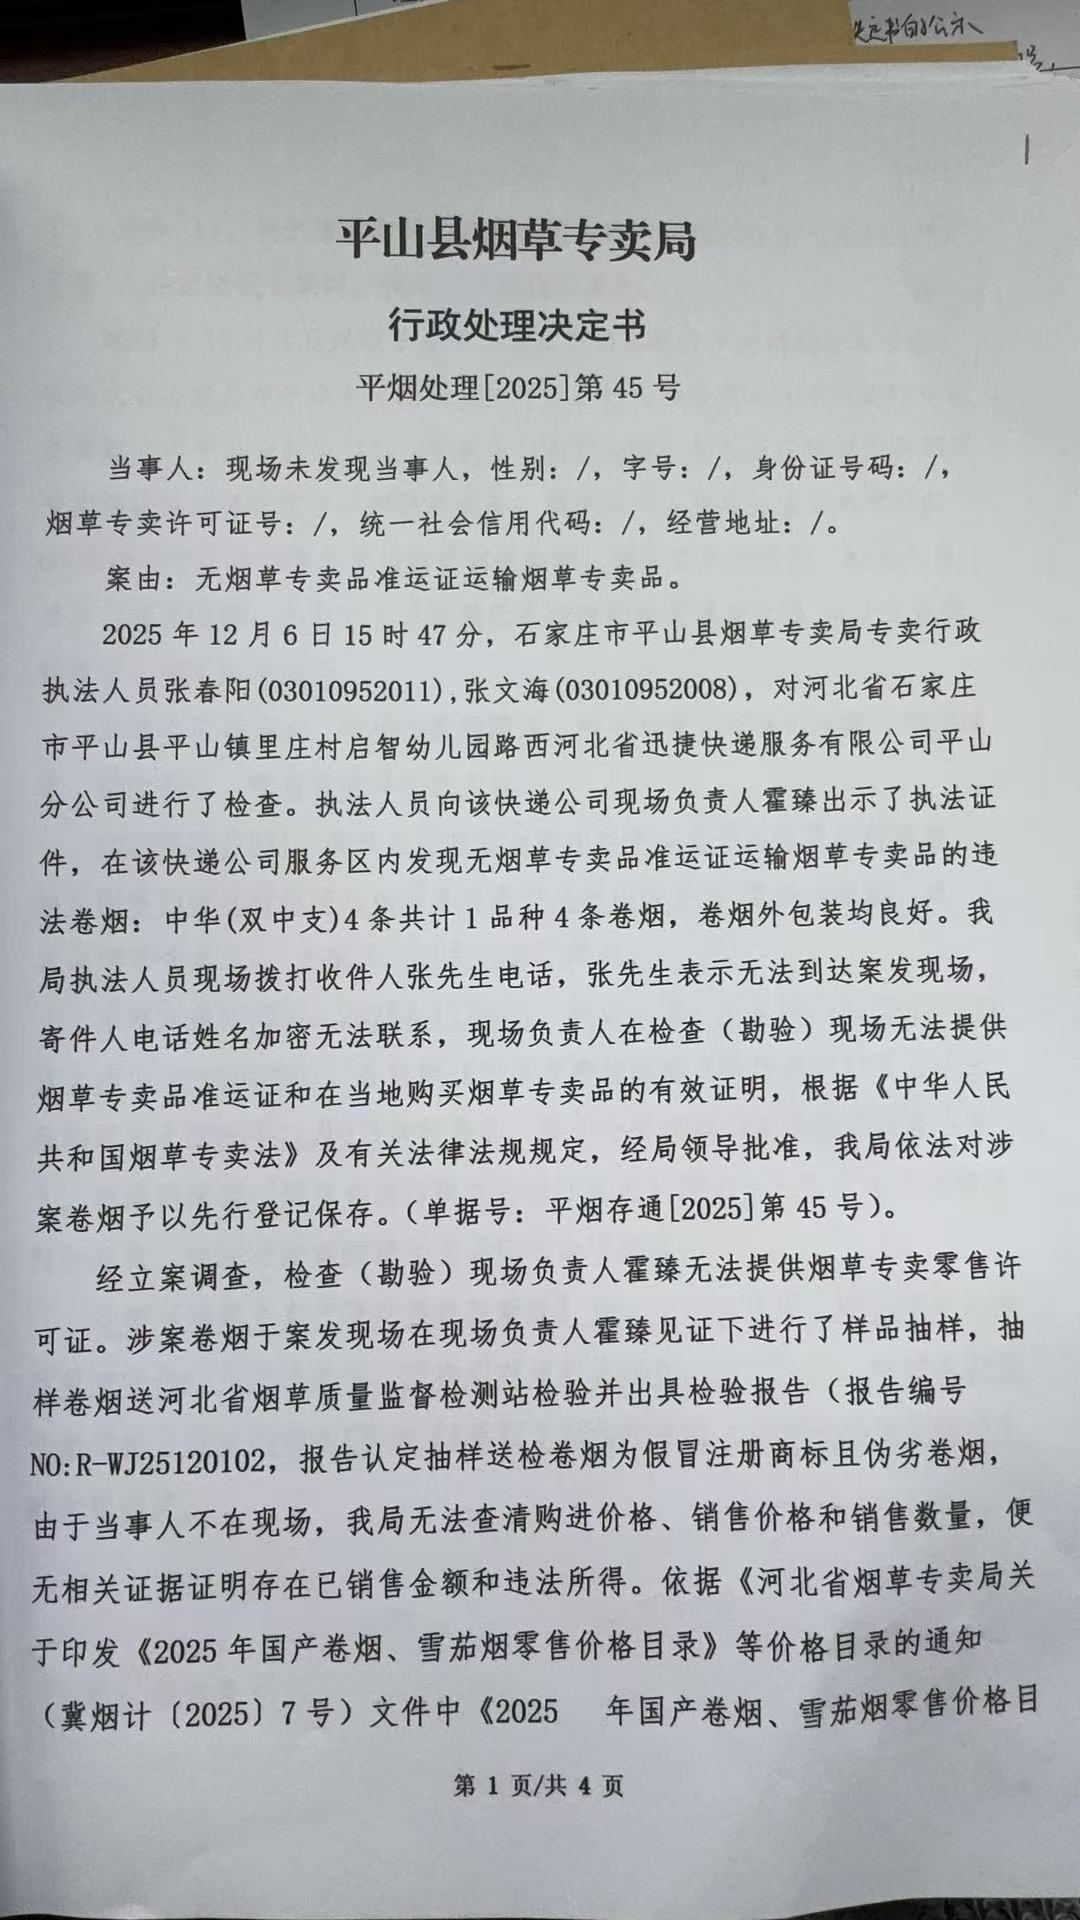 定书的公示
平山县烟草专卖局
行政处理决定书
平烟处理[2025]第 45 号
当事人：现场未发现当事人，性别：/，字号：/，身份证号码：/，
烟草专卖许可证号：/，统一社会信用代码：/，经营地址：/。
案由：无烟草专卖品准运证运输烟草专卖品。
2025 年 12 月 6 日 15 时 47 分，石家庄市平山县烟草专卖局专卖行政
执法人员张春阳(03010952011),张文海(03010952008)，对河北省石家庄
市平山县平山镇里庄村启智幼儿园路西河北省迅捷快递服务有限公司平山
分公司进行了检查。执法人员向该快递公司现场负责人霍臻出示了执法证
件，在该快递公司服务区内发现无烟草专卖品准运证运输烟草专卖品的违
法卷烟：中华(双中支)4 条共计 1 品种 4 条卷烟，卷烟外包装均良好。我
局执法人员现场拨打收件人张先生电话，张先生表示无法到达案发现场，
寄件人电话姓名加密无法联系，现场负责人在检查（勘验）现场无法提供
烟草专卖品准运证和在当地购买烟草专卖品的有效证明，根据《中华人民
共和国烟草专卖法》及有关法律法规规定，经局领导批准，我局依法对涉
案卷烟予以先行登记保存。（单据号：平烟存通[2025]第 45 号）。
经立案调查，检查（勘验）现场负责人霍臻无法提供烟草专卖零售许
可证。涉案卷烟于案发现场在现场负责人霍臻见证下进行了样品抽样，抽
样卷烟送河北省烟草质量监督检测站检验并出具检验报告（报告编号
NO:R-WJ25120102，报告认定抽样送检卷烟为假冒注册商标且伪劣卷烟，
由于当事人不在现场，我局无法查清购进价格、销售价格和销售数量，便
无相关证据证明存在已销售金额和违法所得。依据《河北省烟草专卖局关
于印发《2025 年国产卷烟、雪茄烟零售价格目录》等价格目录的通知
（冀烟计〔2025〕7 号）文件中《2025 年国产卷烟、雪茄烟零售价格目
第 1 页/共 4 页